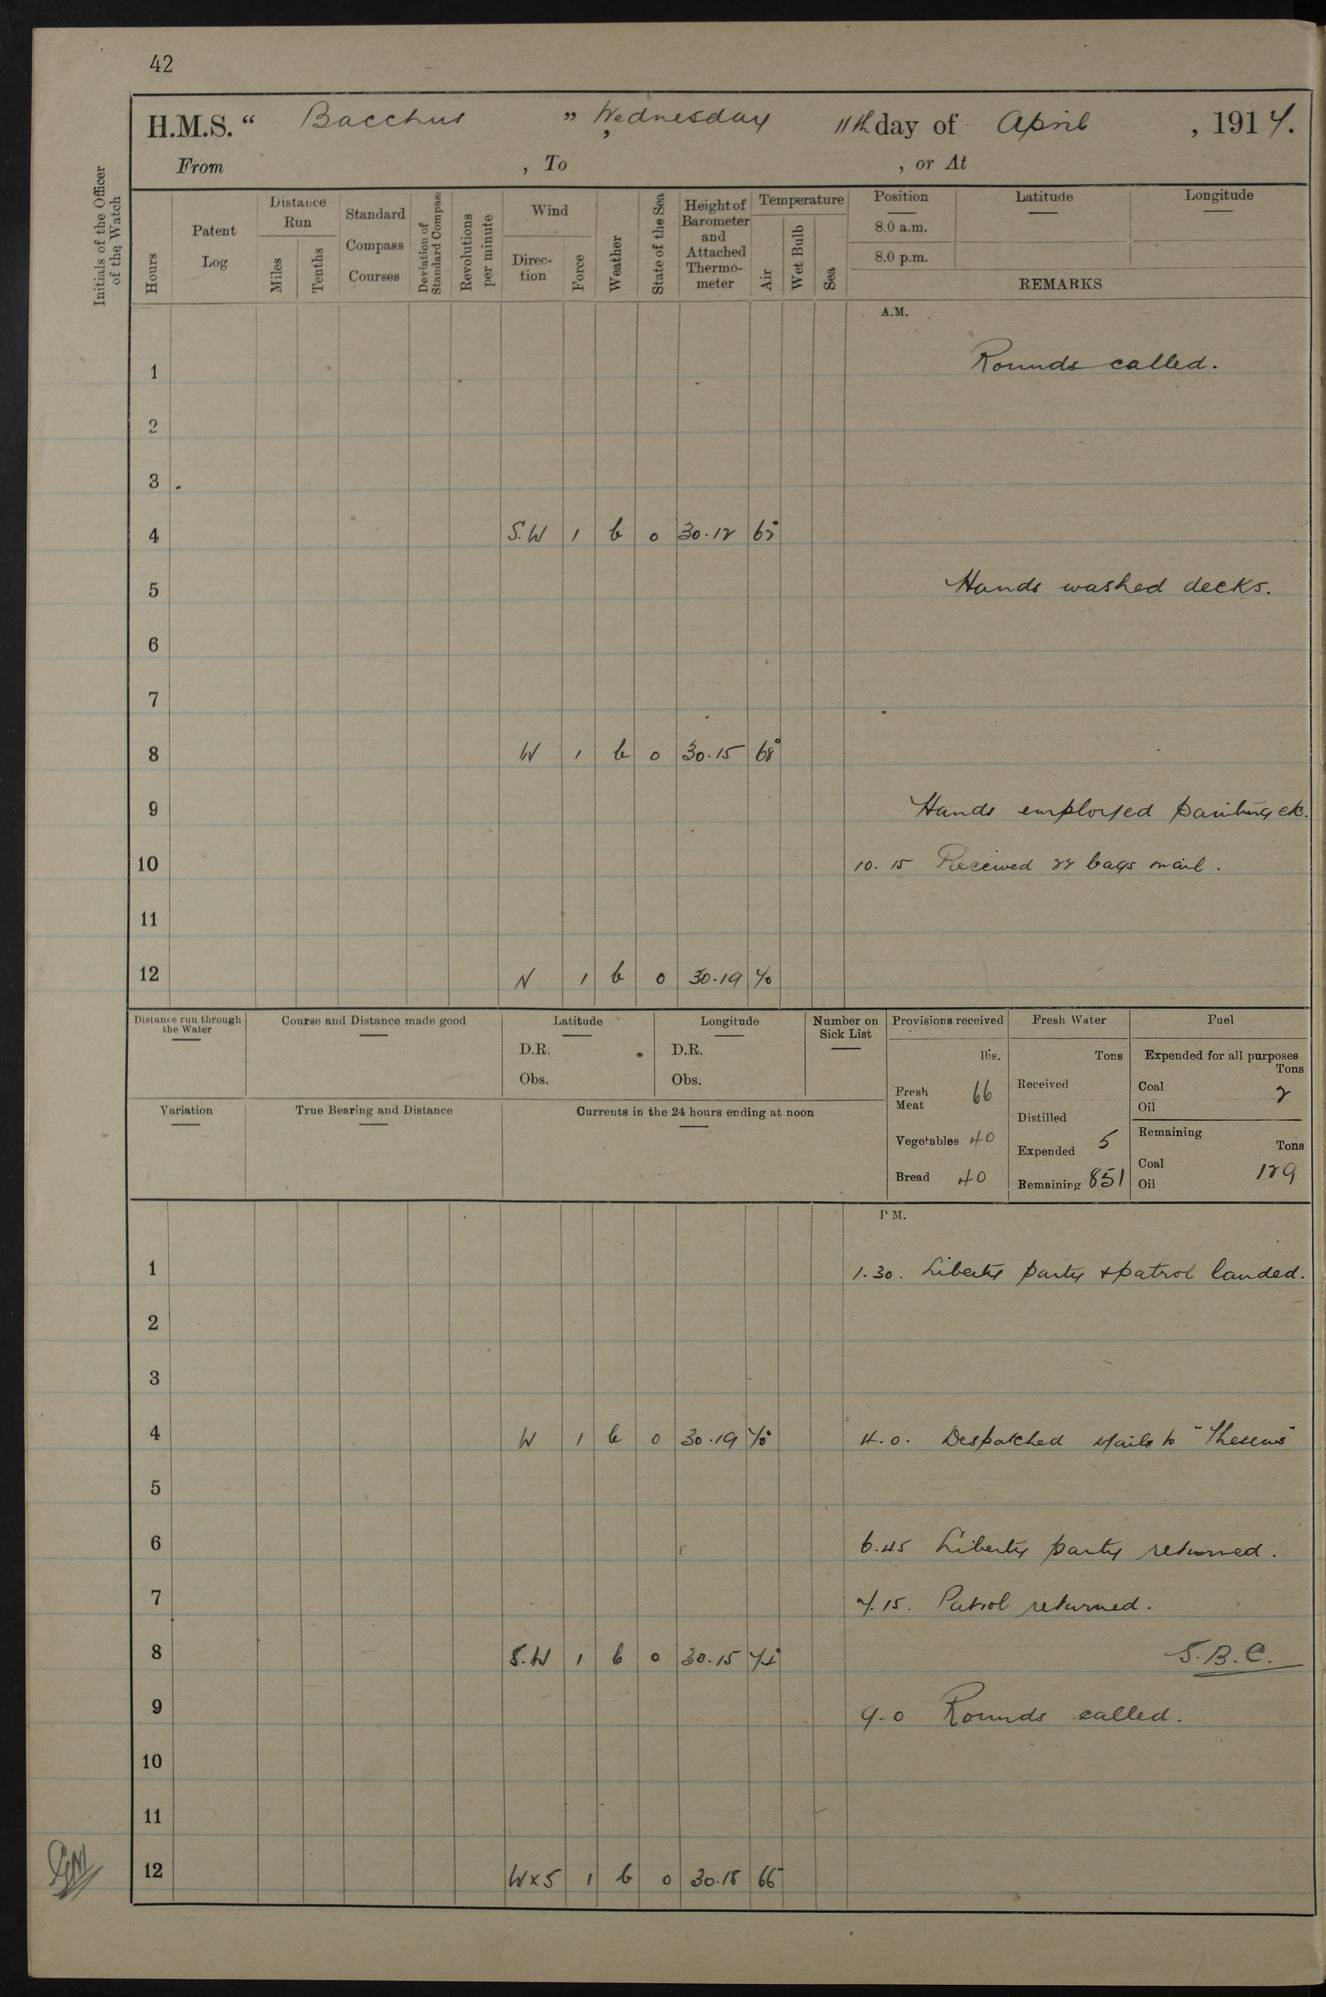 42
H.M.S. “ Bacchus ” , Wednesday 11th day of April , 1917.
From , To , or At
Initials of the Officer of the Watch
Hours
Patent Log
Distance Run
Miles
Tenths
Standard Compass Courses
Deviation of Standard Compass
Revolutions per minute
Wind
Direc-tion
Force
Weather
State of the Sea
Height of Barometer and Attached Thermo-meter
Temperature
Air
Wet Bulb
Sea
Position
8.0 a.m.
8.0 p.m.
Latitude
Longitude
REMARKS
A.M.
1 Rounds called.
2
3
4 S.W 1 b 0 30.12
5 Hands washed decks.
6
7
8 W 1 b 0 30.15 68°
9 Hands employed painting etc.
10 10.15 Received 22 bags mail.
11
12 N 1 b 0 30.19 70
Distance run through the Water
Course and Distance made good
Latitude
D.R.
Obs.
Longitude
D.R.
Obs.
Number on Sick List
Variation
True Bearing and Distance
Currents in the 24 hours ending at noon
Provisions received
lbs.
Fresh Meat 66
Vegetables 40
Bread 40
Fresh Water
Tons
Received
Distilled
Expended 5
Remaining 851
Fuel
Expended for all purposes
Tons
Coal 2
Oil
Remaining
Tons
Coal 129
Oil
P.M.
1 1.30. Liberty party & patrol landed.
2
3
4 W 1 b 0 30.19 70° 4.0. Despatched Mails to "Theseus"
5
6 6.45 Liberty party returned.
7 7.15. Patrol returned.
8 S.W 1 b 0 30.15 S.B.C.
9 9.0 Rounds called.
10
11
12 WxS 1 b 0 30.18 66